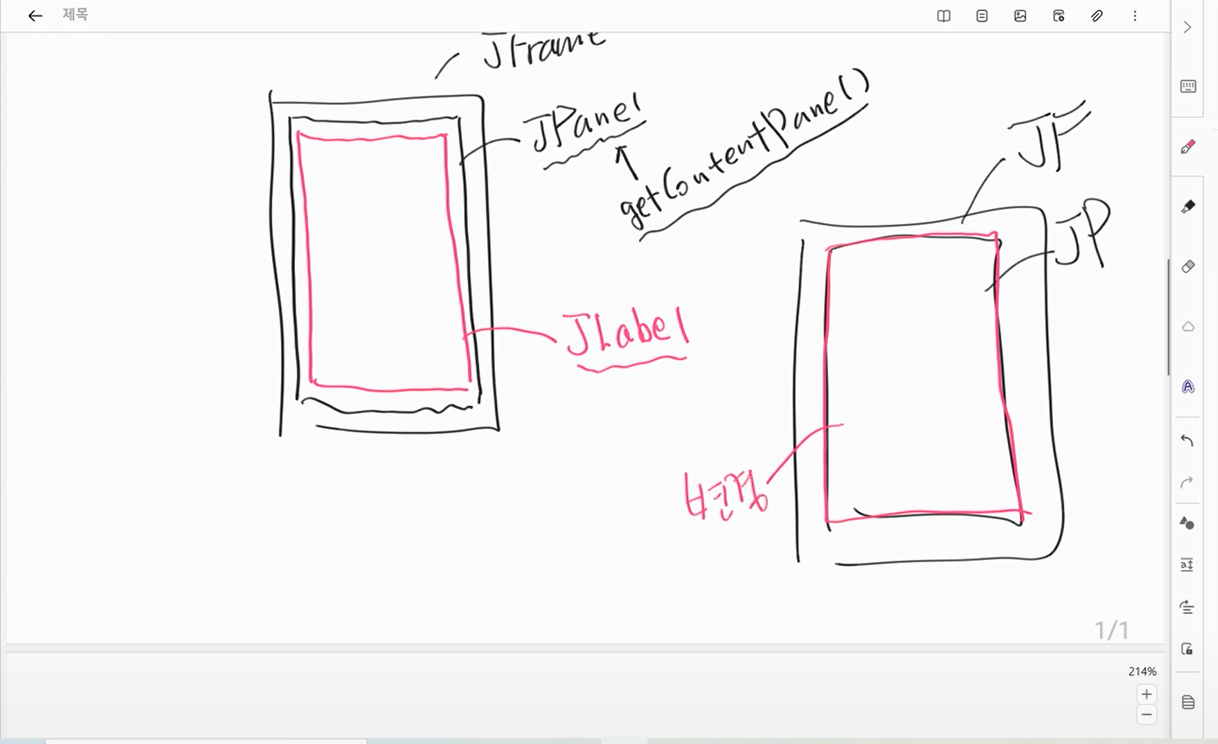 제목
JFrame
JPanel
getContentPanel()
JLabel
JF
JP
변경
1/1
214%